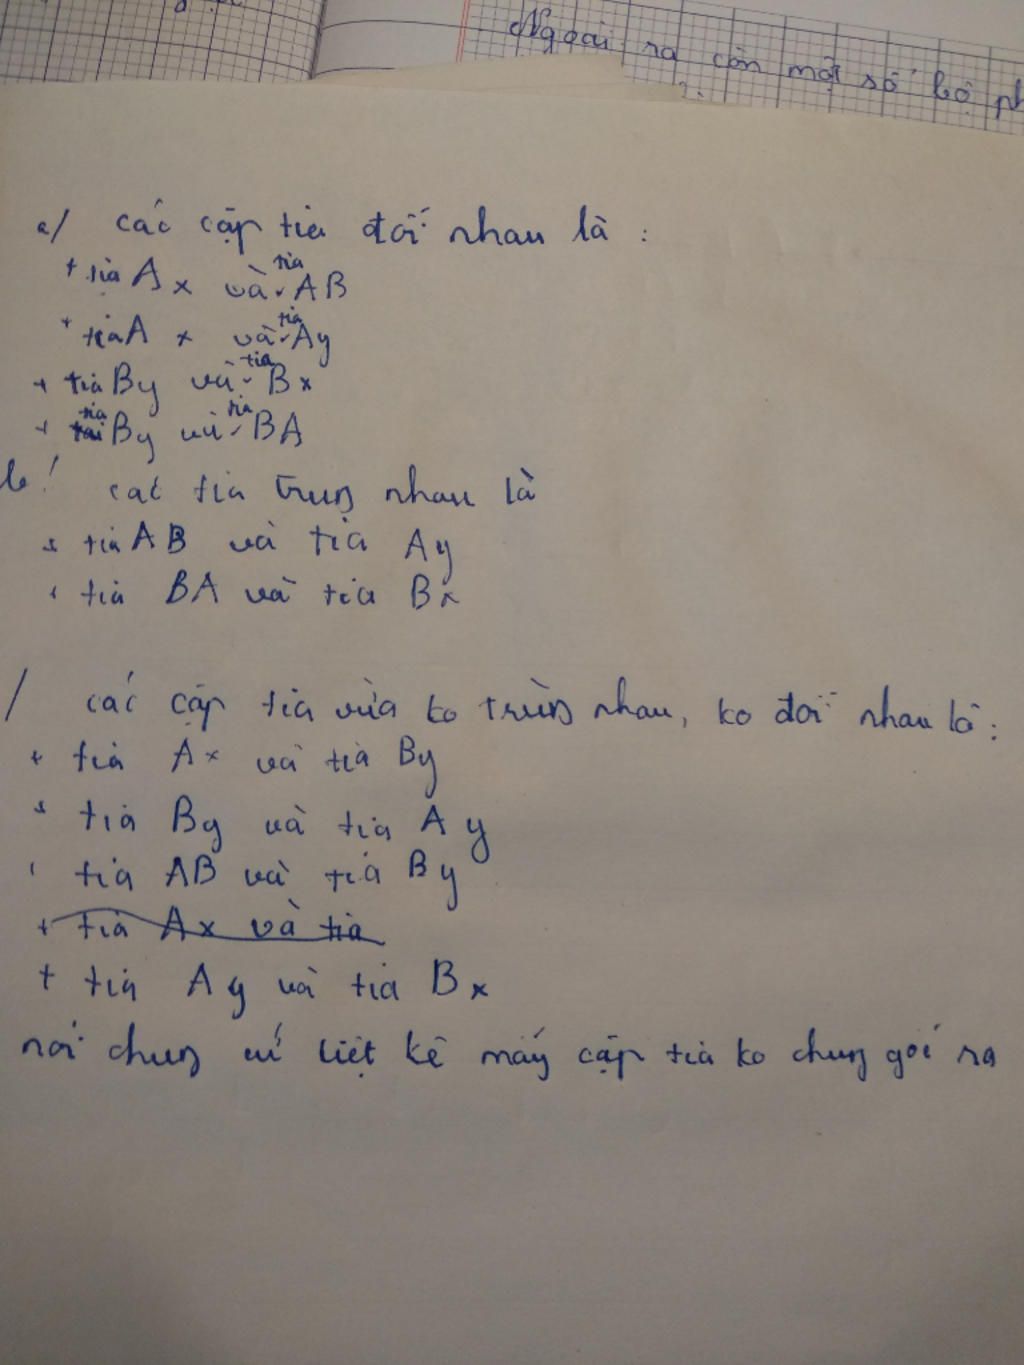 Ngoài ra còn một số bộ ph
a/ các cặp tia đối nhau là :
+ tia Ax và tia AB
+ tia Ax và tia Ay
+ tia By và tia Bx
+ tia By và tia BA
b/ các tia trùng nhau là
+ tia AB và tia Ay
+ tia BA và tia Bx
/ các cặp tia vừa ko trùng nhau, ko đối nhau là :
+ tia Ax và tia By
+ tia By và tia Ay
+ tia AB và tia By
+ tia Ax và tia
+ tia Ay và tia Bx
nói chung cứ liệt kê mấy cặp tia ko chung gốc ra